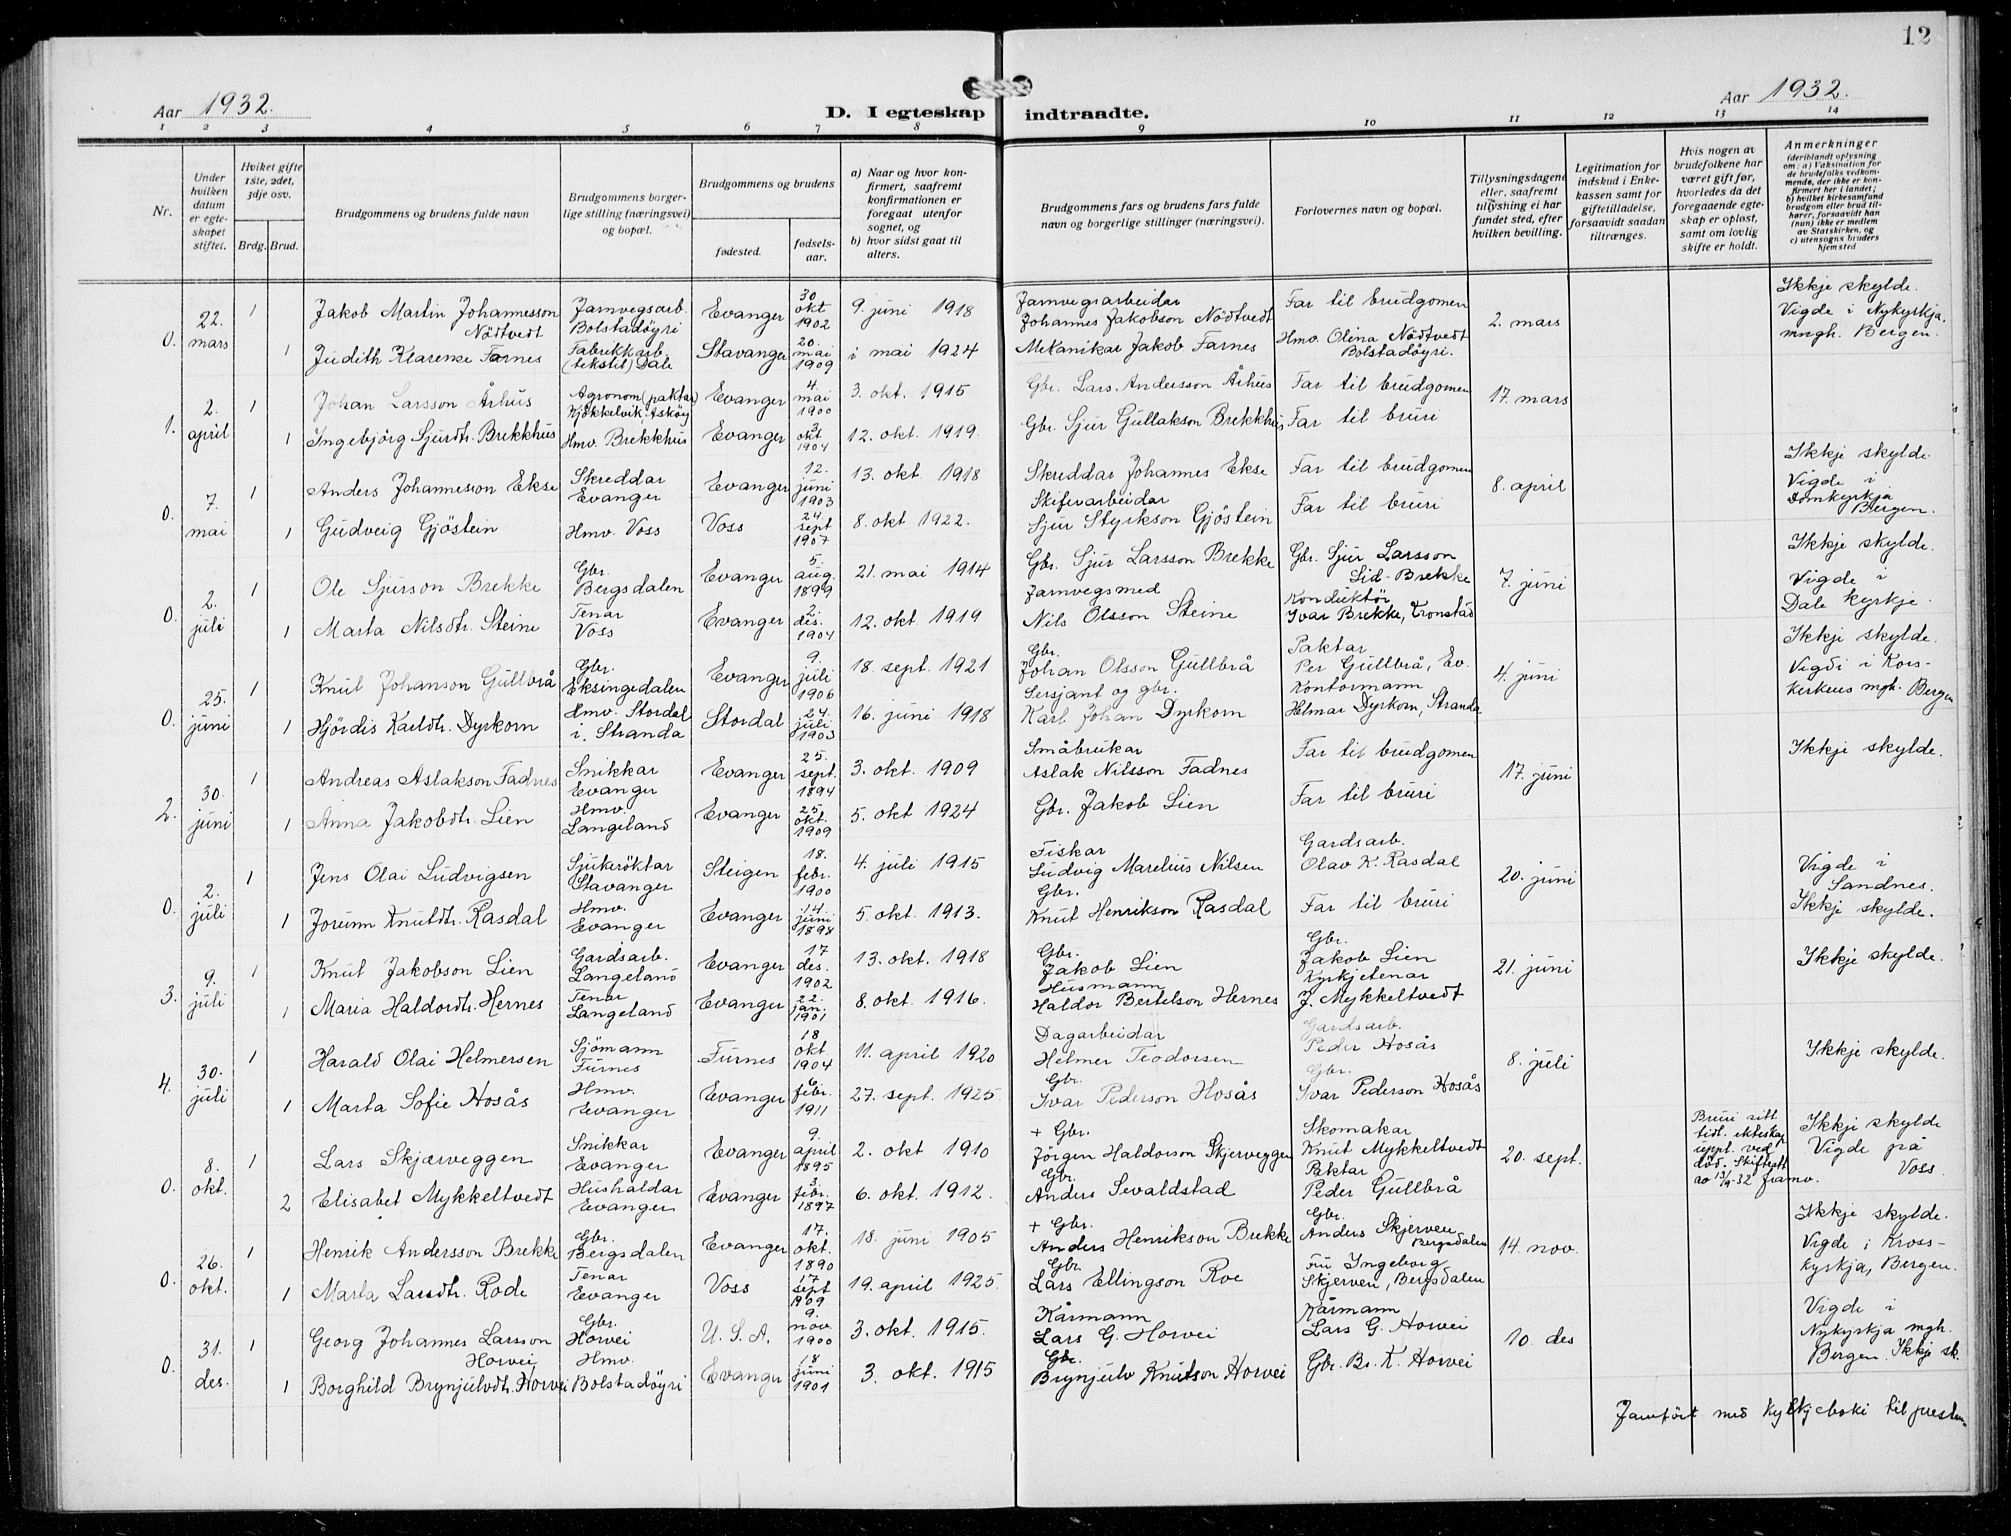 12
Aar 1932.
D. I egteskap indtraadte.
Aar 1932.
1 2 3 4 5 6 7 8 9 10 11 12 13 14
Nr.
Under hvilken datum er egteskapet stiftet.
Hvilket gifte 1ste, 2det, 3dje osv.
Brdg. Brud.
Brudgommens og brudens fulde navn
Brudgommens borgerlige stilling (næringsvei) og bopæl.
Brudgommens og brudens
fødested.
fødselsaar.
a) Naar og hvor konfirmert, saafremt konfirmationen er foregaat utenfor sognet, og
b) hvor sidst gaat til alters.
Brudgommens fars og brudens fars fulde navn og borgerlige stillinger (næringsvei).
Forlovernes navn og bopæl.
Tillysningsdagene eller, saafremt tillysning ei har fundet sted, efter hvilken bevilling.
Legitimation for indskud i Enkekassen samt for giftetilladelse, forsaavidt saadan tiltrænges.
Hvis nogen av brudefolkene har været gift før, hvorledes da det foregaaende egteskap er opløst, samt om lovlig skifte er holdt.
Anmerkninger (deriblandt oplysning om: a) Vaksination for de brudefolks vedkommende, der ikke er konfirmert her i landet; b) hvilket kirkesamfund brudgom eller brud tilhører, forsaavidt han (hun) ikke er medlem av Statskirken, og c) utensogns bruders hjemsted
0. 22. mars 1 Jakob Martin Johannesson Nödtvedt Jarnvegsarb. Bolstadöyri Evanger 30 okt 1902 9. juni 1918 Jarnvegsarbeidar Johannes Jakobson Nödtvedt Far til brudgomen 2. mars Ikkje skylde. Vigde i Nykyrkja. mngh. Bergen.
1 Judith Klarense Farnes Fabrikkarb. (tekstil) Dale Stavanger 20. mai 1909 i mai 1924 Mekanikar Jakob Farnes Hmv. Olina Nödtvedt Bolstadöyri.
1. 2. april 1 Johan Larsson Århus Agronom (paktar) Kjökkelvik, Asköy Evanger 4. mai 1900 3. okt. 1915 Gbr. Lars Andersson Århus Far til brudgomen 17. mars
1 Ingebjörg Sjurdtr. Brekkhus Hmv. Brekkhus Evanger 3. okt 1904 12. okt. 1919. Gbr. Sjur Gullakson Brekkhus Far til bruri
0. 7. mai 1 Anders Johannesson Ekse Skreddar Evanger Evanger 12. juni 1903 13. okt 1918 Skreddar Johannes Ekse Far til brudgomen 8. april Ikkje skylde. Vigde i Domkyrkja Bergen.
1 Gudveig Gjöstein Hmv. Voss Voss 24. sept 1907 8. okt 1922. Skiferarbeidar Sjur Styrkson Gjöstein Far til bruri
0. 2. juli 1 Ole Sjurson Brekke Gbr. Bergsdalen Evanger 5. aug. 1899 21. mai 1914 Gbr. Sjur Larsson Brekke Gbr. Sjur Larsson Lid-Brekke 7. juni Ikkje skylde. Vigde i Dale kyrkje.
1 Marta Nilsdtr. Steine Tenar Voss Evanger 2. des. 1904 12. okt 1919 Jarnvegsmed Nils Olsson Steine Konduktör Ivar Brekke, Kronstad
0. 25. juni 1 Knut Johanson Gullbrå Gbr. Eksingedalen Evanger 9. juli 1906 18 sept. 1921 Gbr. Johan Olsson Gullbrå Paktar Per Gullbrå, Ev. 4. juni Ikkje skylde. Vigdi i Kors-kerkeus mgh. Bergen
1 Hjördis Karldtr. Dyrkorn Hmv. Stordal i. Stranda Stordal 24. juli 1903 16. juni 1918 Sersjant og gbr. Karl Johan Dyrkorn Kontormann Helmar Dyrkorn, Stranda
2. 30. juni 1 Andreas Aslakson Fadnes Snikkar Evanger Evanger 25. sept. 1894 3. okt. 1909 Småbrukar Aslak Nilsson Fadnes Far til brudgomen 17. juni Ikkje skylde.
1 Anna Jakobdtr. Lien Hmv. Langeland Evanger 25. okt. 1909 5. okt 1924 Gbr. Jakob Lien Far til bruri
0. 2. juli 1 Jens Olai Ludvigsen Sjukeröktar Stavanger Steigen 18. febr. 1900 4. juli 1915 Fiskar Ludvig Marelius Nilsen Gardsarb. Olav K. Rasdal 20. juni Vigde i Sandnes. Ikkje skylde.
1 Jorunn Knutdtr. Rasdal Hmv. Evanger Evanger 14. juni 1898 5. okt. 1913. Gbr. Knut Henrikson Rasdal Far til bruri
3. 9. juli 1 Knut Jakobson Lien Gardsarb. Langeland Evanger 17 des. 1902 13. okt. 1918 Gbr. Jakob Lien Gbr. Jakob Lien 21. juni Ikkje skylde.
1 Maria Haldordtr. Hernes Tenar Langeland Evanger 22. jan. 1901 8. okt. 1916. Husmann Haldor Bertelson Hernes Kyrkjetenar J. Mykkeltvedt
4. 30. juli 1 Harald Olai Helmersen Sjömann Furnes Furnes 18 okt 1904 11. april 1920 Dagarbeidar Helmer Teodorsen Gardsarb. Peder Hosås 8. juli Ikkje skylde.
1 Marta Sofie Hosås Hmv. Evanger Evanger 6 febr. 1911 27. sept. 1925 Gbr. Ivar Pederson Hosås Gbr. Ivar Pederson Hosås
0. 8. okt. 1 Lars Skjærveggen Snikkar Evanger Evanger 9. april 1895 2. okt 1910 + Gbr. Jörgen Haldorson Skjerveggen Skomakar Knut Mykkeltvedt 20. sept. Bruri sitt tidl. ekteskap uppl. ved död. Skifteatt av 13/9-32 framv. Ikkje skylde Vigde på Voss.
2 Elisabet Mykkeltvedt Hushaldar Evanger Evanger 3. febr. 1897 6. okt. 1912. Gbr. Anders Sevaldstad Paktar Peder Gullbrå
0. 26. okt. 1 Henrik Andersson Brekke Gbr. Bergsdalen Evanger 17. okt. 1890 18. juni 1905 + Gbr. Anders Henrikson Brekke Gbr. Anders Skjerven Bergsdalen 14. nov. Ikkje skylde. Vigde i Kross-kyrkja, Bergen.
1 Marta Larsdtr. Rode Tenar Evanger Voss 17 sept 1909 19. april 1925. Gbr. Lars Ellingson Roe Fru Ingeborg Skjerven, Bergsdalen
0. 31. des. 1 Georg Johannes Larsson Horvei Gbr. Horvei U.S.A. 9. nov. 1900 3. okt. 1915. Kårmann Lars G. Horvei Kårmann Lars G. Horvei 10. des Vigde i Nykyrkja mgh. Bergen. Ikkje sk.
1 Borghild Brynjulvdtr. Horvei Hmv. Bolstadöyri Evanger 18 juni 1901 3. okt. 1915 Gbr. Brynjulv Knutson Horvei Gbr. Br. K. Horvei
Jamfört med kyrkjeboki til presten.